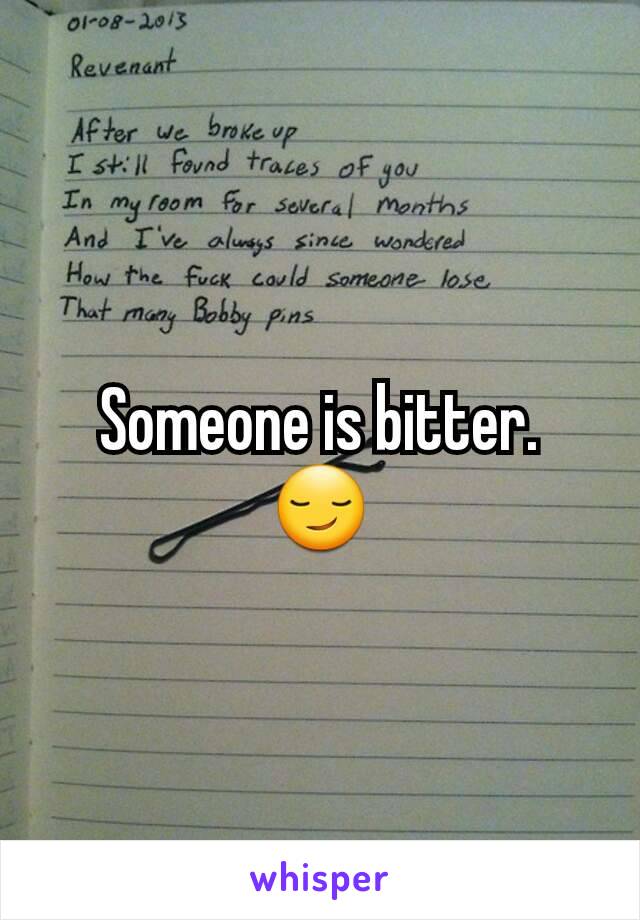 01-08-2013
Revenant
After we broke up
I still found traces of you
In my room for several months
And I've always since wondered
How the fuck could someone lose
That many Bobby pins
Someone is bitter.
😏
whisper